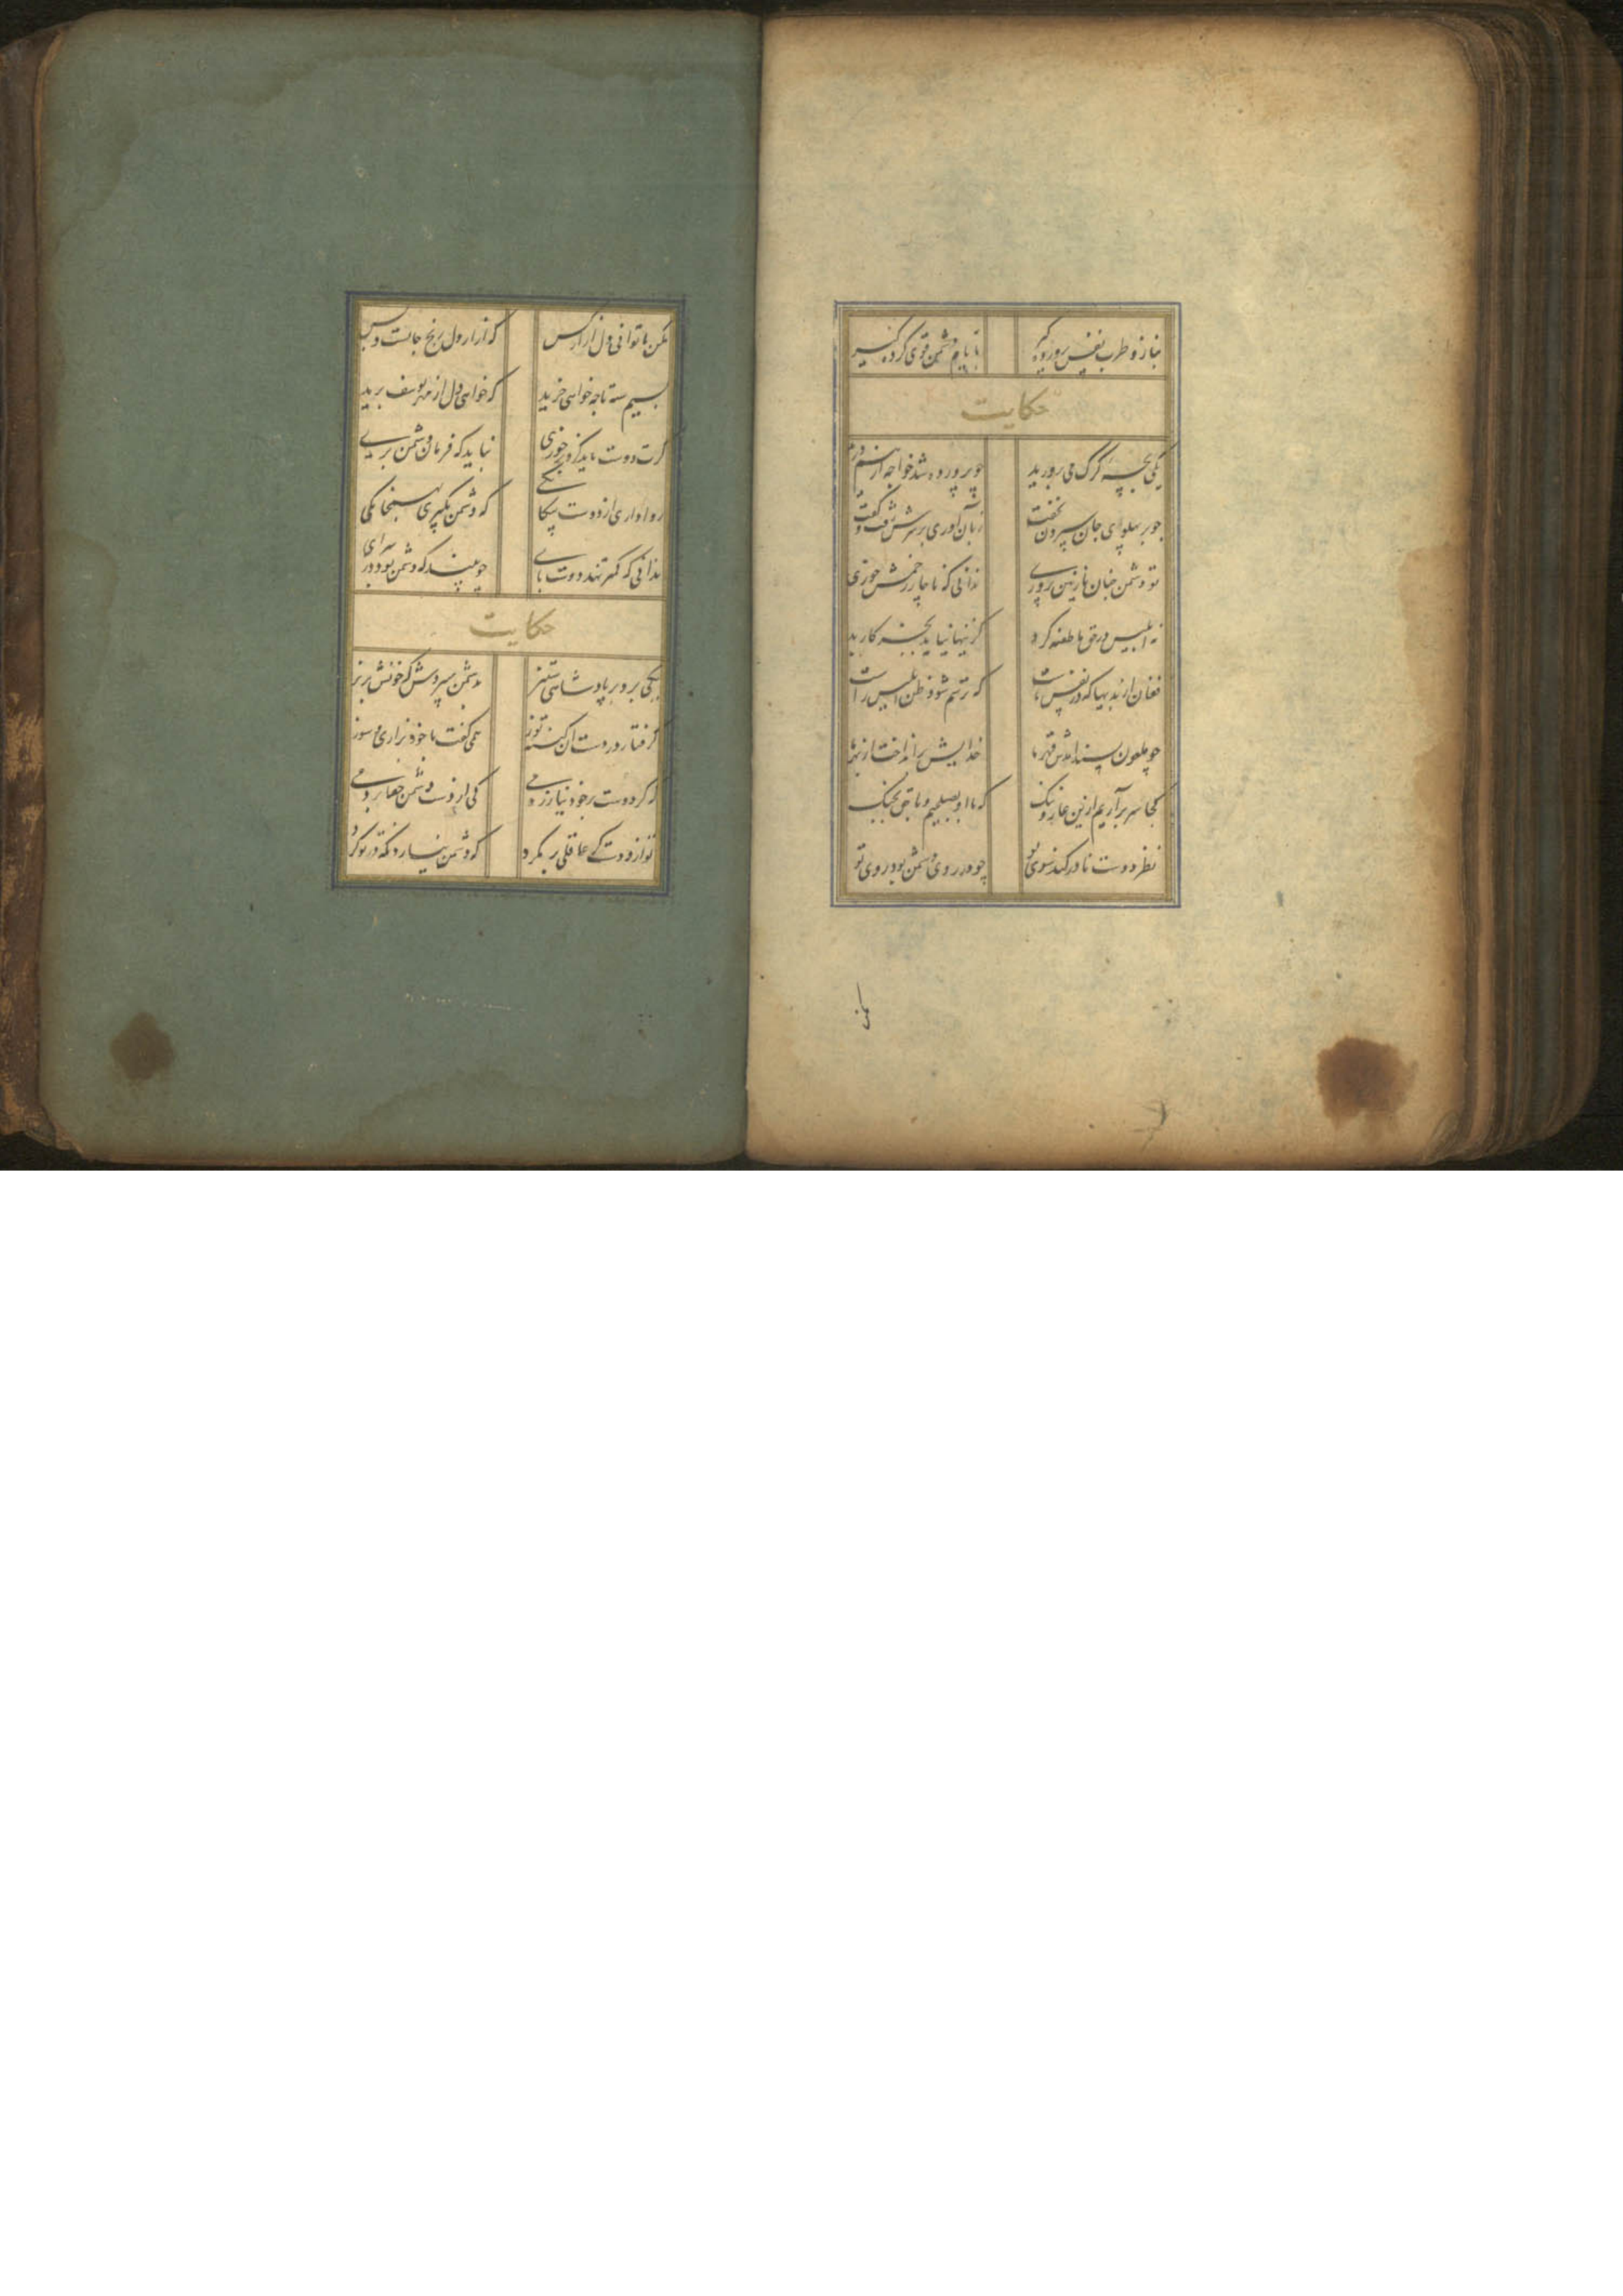 بناز و طرب نفس پرورده کیر بایام دشمن قوی کرده کیر
حکایت
یکی بچه کرک می پرورید چو پرورده شد خواجه از هم درید
چو بر پهلوی جان سپردن بخفت زبان آوری بر سرش رفت و کفت
تو دشمن چنان نازنین پروری ندانی که ناچار زخمش خوری
نه ابلیس در حق ما طعنه کرد کزینها نیاید بجز کار بد
فغان از بدیها که در نفس ماست که ترسم شود ظن ابلیس راست
چو ملعون پسند آمدش قهر ما خدایش برانداخت از بهر ما
کجا سر برآریم ازین عار و ننک که با او بصلحیم و با حق بجنک
نظر دوست نادر کند سوی تو چو در روی دشمن بود روی تو
مکن تا توانی دل آزار کس که آزار دل رنج جانست و بس
بسیم سیه تا چه خواهی خرید که خواهی دل از مهر یوسف برید
کرت دوست باید کزو بر خوری نباید که فرمان دشمن بری
روا داری از دوست بیکانکی که دشمن بکیری بهمخانکی
ندانی که کمتر نهد دوست پای چو بیند که دشمن بود در سرای
حکایت
یکی برد بر پادشاهی ستیز بدشمن سپردش که خونش بریز
کرفتار در دست آن کینه توز همی کفت با خود بزاری و سوز
اکر دوست بر خود نیازردمی کی از دست دشمن جفا بردمی
تو از دوست کر عاقلی بر مکرد که دشمن نیارد نکه در تو کرد